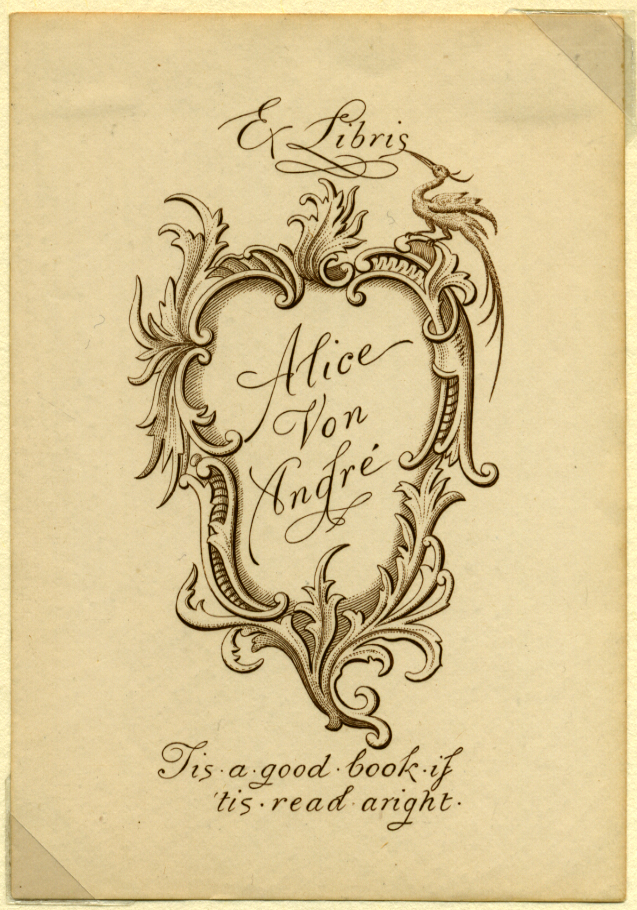 Ex Libris
Alice
Von
André
Tis·a·good·book·if
'tis·read aright·